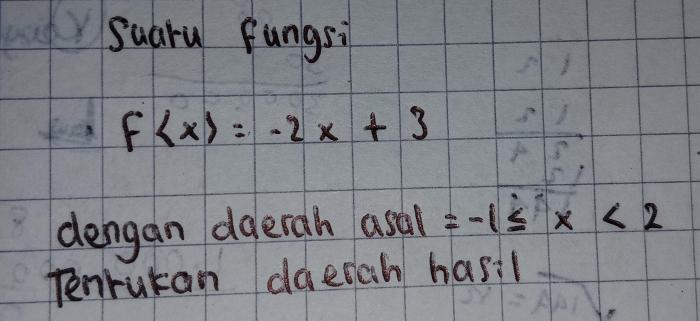 Suatu fungsi
F(x) = -2x + 3
dengan daerah asal = -1 ≤ x < 2
Tentukan daerah hasil